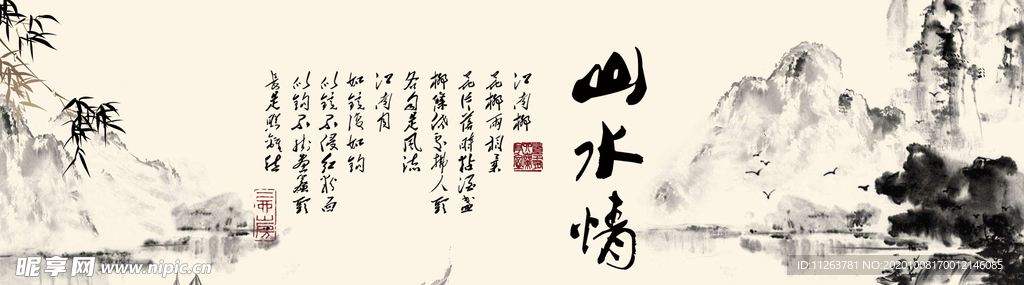 山水情
江南柳
花柳兩相柔
花片落時黏酒盞
柳條低處拂人頭
各自是風流
江南月
如鏡復如鉤
似鏡不侵紅粉面
似鉤不掛畫簾頭
長是照離愁
昵享网 www.nipic.cn
ID:11263781 NO:20201008170012146085